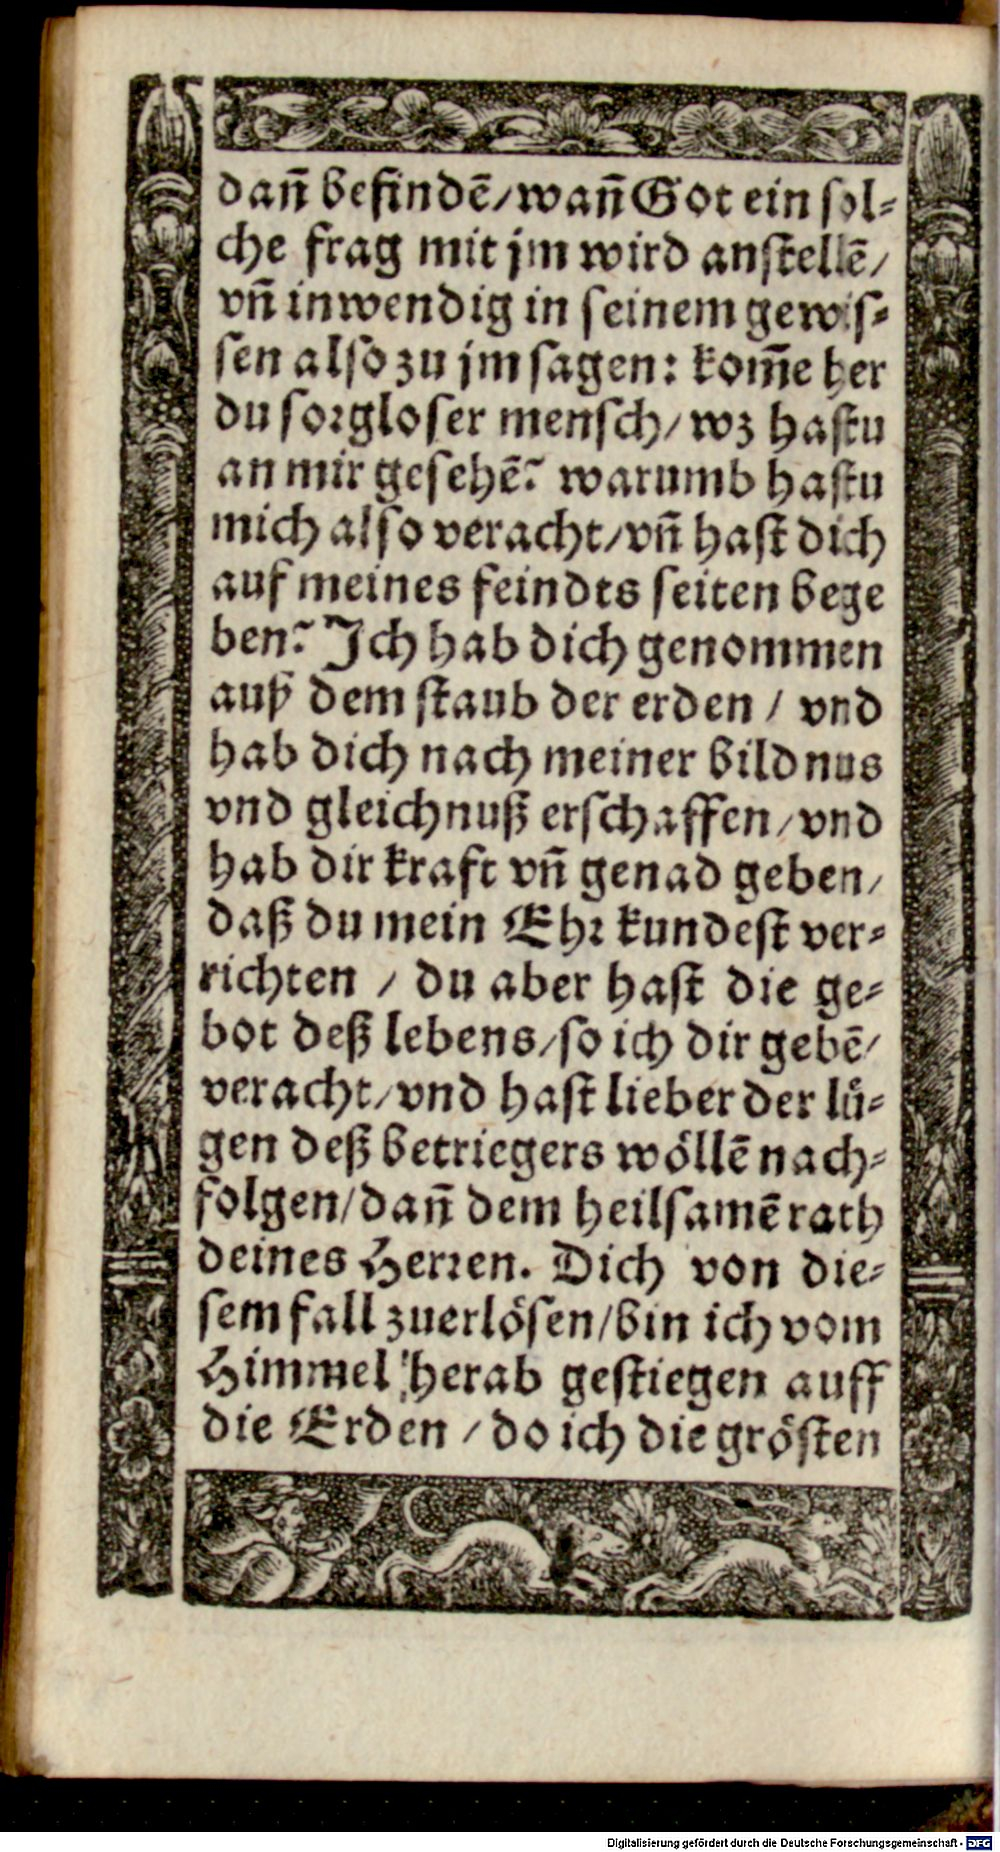 dañ befindē/wañ Got ein sol-
che frag mit jm wird anstellē/
vñ inwendig in seinem gewis-
sen also zu jm sagen: kom̄e her
du sorgloser mensch/wz hastu
an mir gesehē? warumb hastu
mich also veracht/vñ hast dich
auf meines feindts seiten bege
ben? Ich hab dich genommen
auß dem staub der erden / vnd
hab dich nach meiner bildnus
vnd gleichnuß erschaffen/vnd
hab dir kraft vñ genad geben/
daß du mein Ehr kundest ver-
richten / du aber hast die ge-
bot deß lebens/so ich dir gebē/
veracht/vnd hast lieber der lü-
gen deß betriegers wöllē nach-
folgen/dañ dem heilsamē rath
deines Herren. Dich von die-
sem fall zuerlösen/bin ich vom
Himmel herab gestiegen auff
die Erden / do ich die grösten
Digitalisierung gefördert durch die Deutsche Forschungsgemeinschaft - DFG